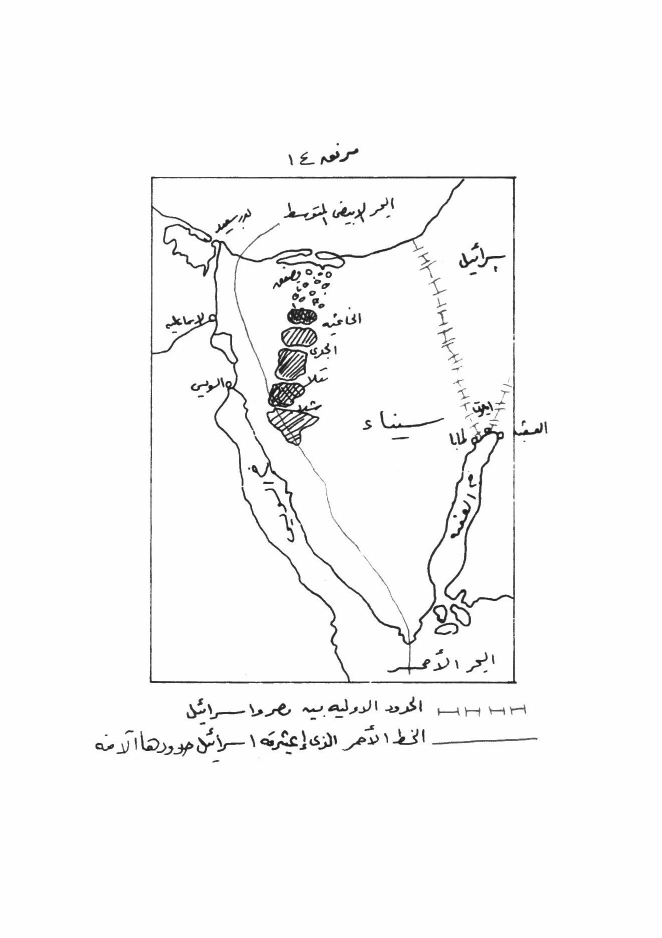 مرفق ١٤
البحر الابيض المتوسط
بور سعيد
إسرائيل
الاسماعيلية
الجدى
السويس
شلا
سيناء
طابا
العقبة
خ العقبة
البحر الأحمر
الحدود الاوليه بين مصر واسرائيل
الخط الأحمر الذى إعتبرته اسرائيل حدودها الآمنه